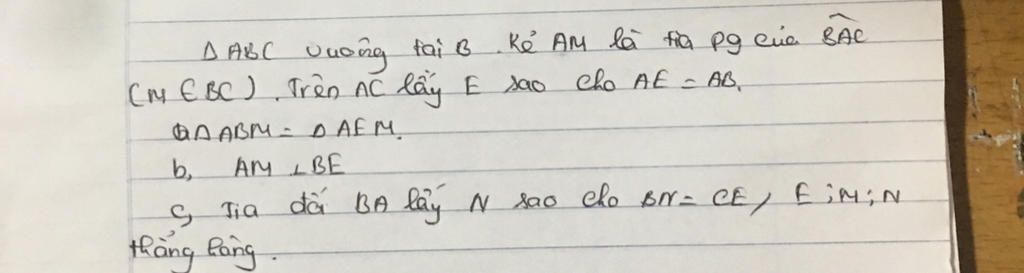 Δ ABC vuông tại B. Kẻ AM là tia pg của BAC
(M ∈ BC). Trên AC lấy E sao cho AE = AB.
a, Δ ABM = Δ AEM.
b, AM ⊥ BE
c, Tia đối BA lấy N sao cho BN = CE, E;M;N
thẳng hàng.